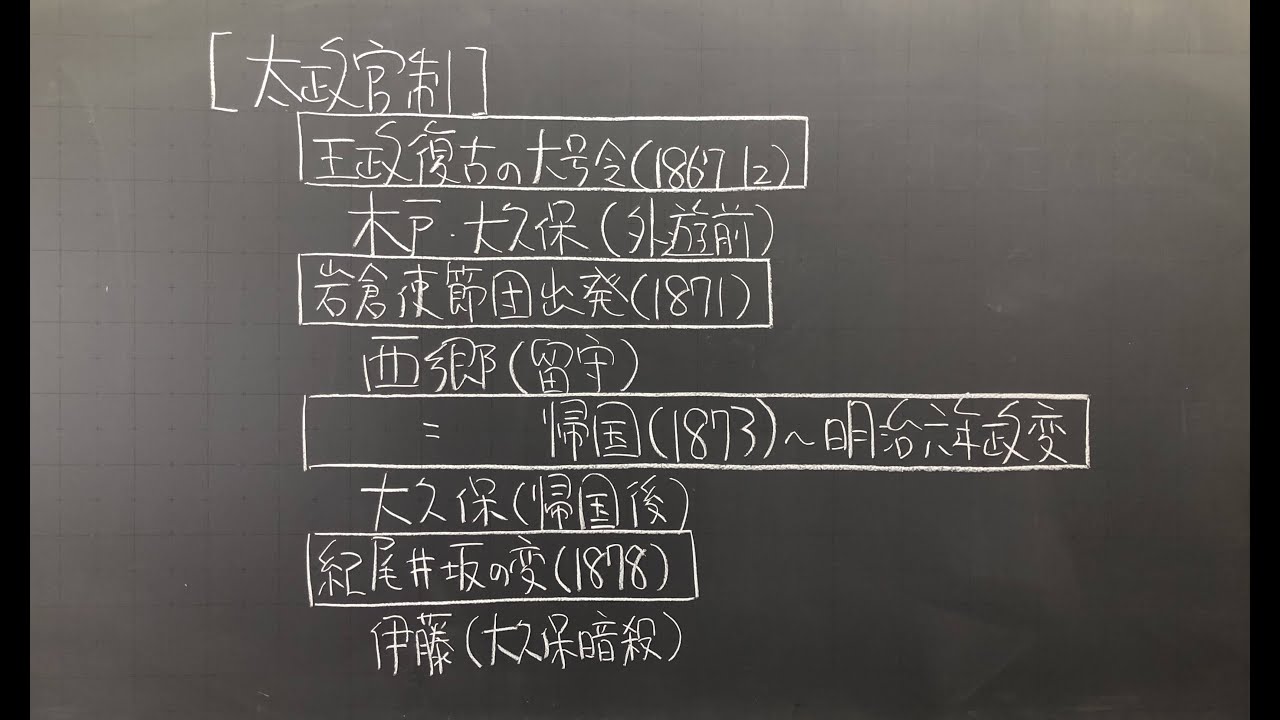 [太政官制]
王政復古の大号令(1867 12)
木戸・大久保(外遊前)
岩倉使節団出発(1871)
西郷(留守)
= 帰国(1873)~明治六年政変
大久保(帰国後)
紀尾井坂の変(1878)
伊藤(大久保暗殺)